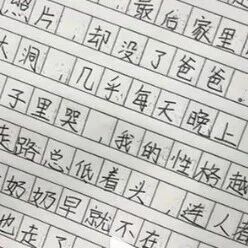 照片，却没了爸爸。
最后家里
大洞，几乎每天晚上
子里哭，我的性格越
走路总低着头，连人
奶奶早就不在
也走了